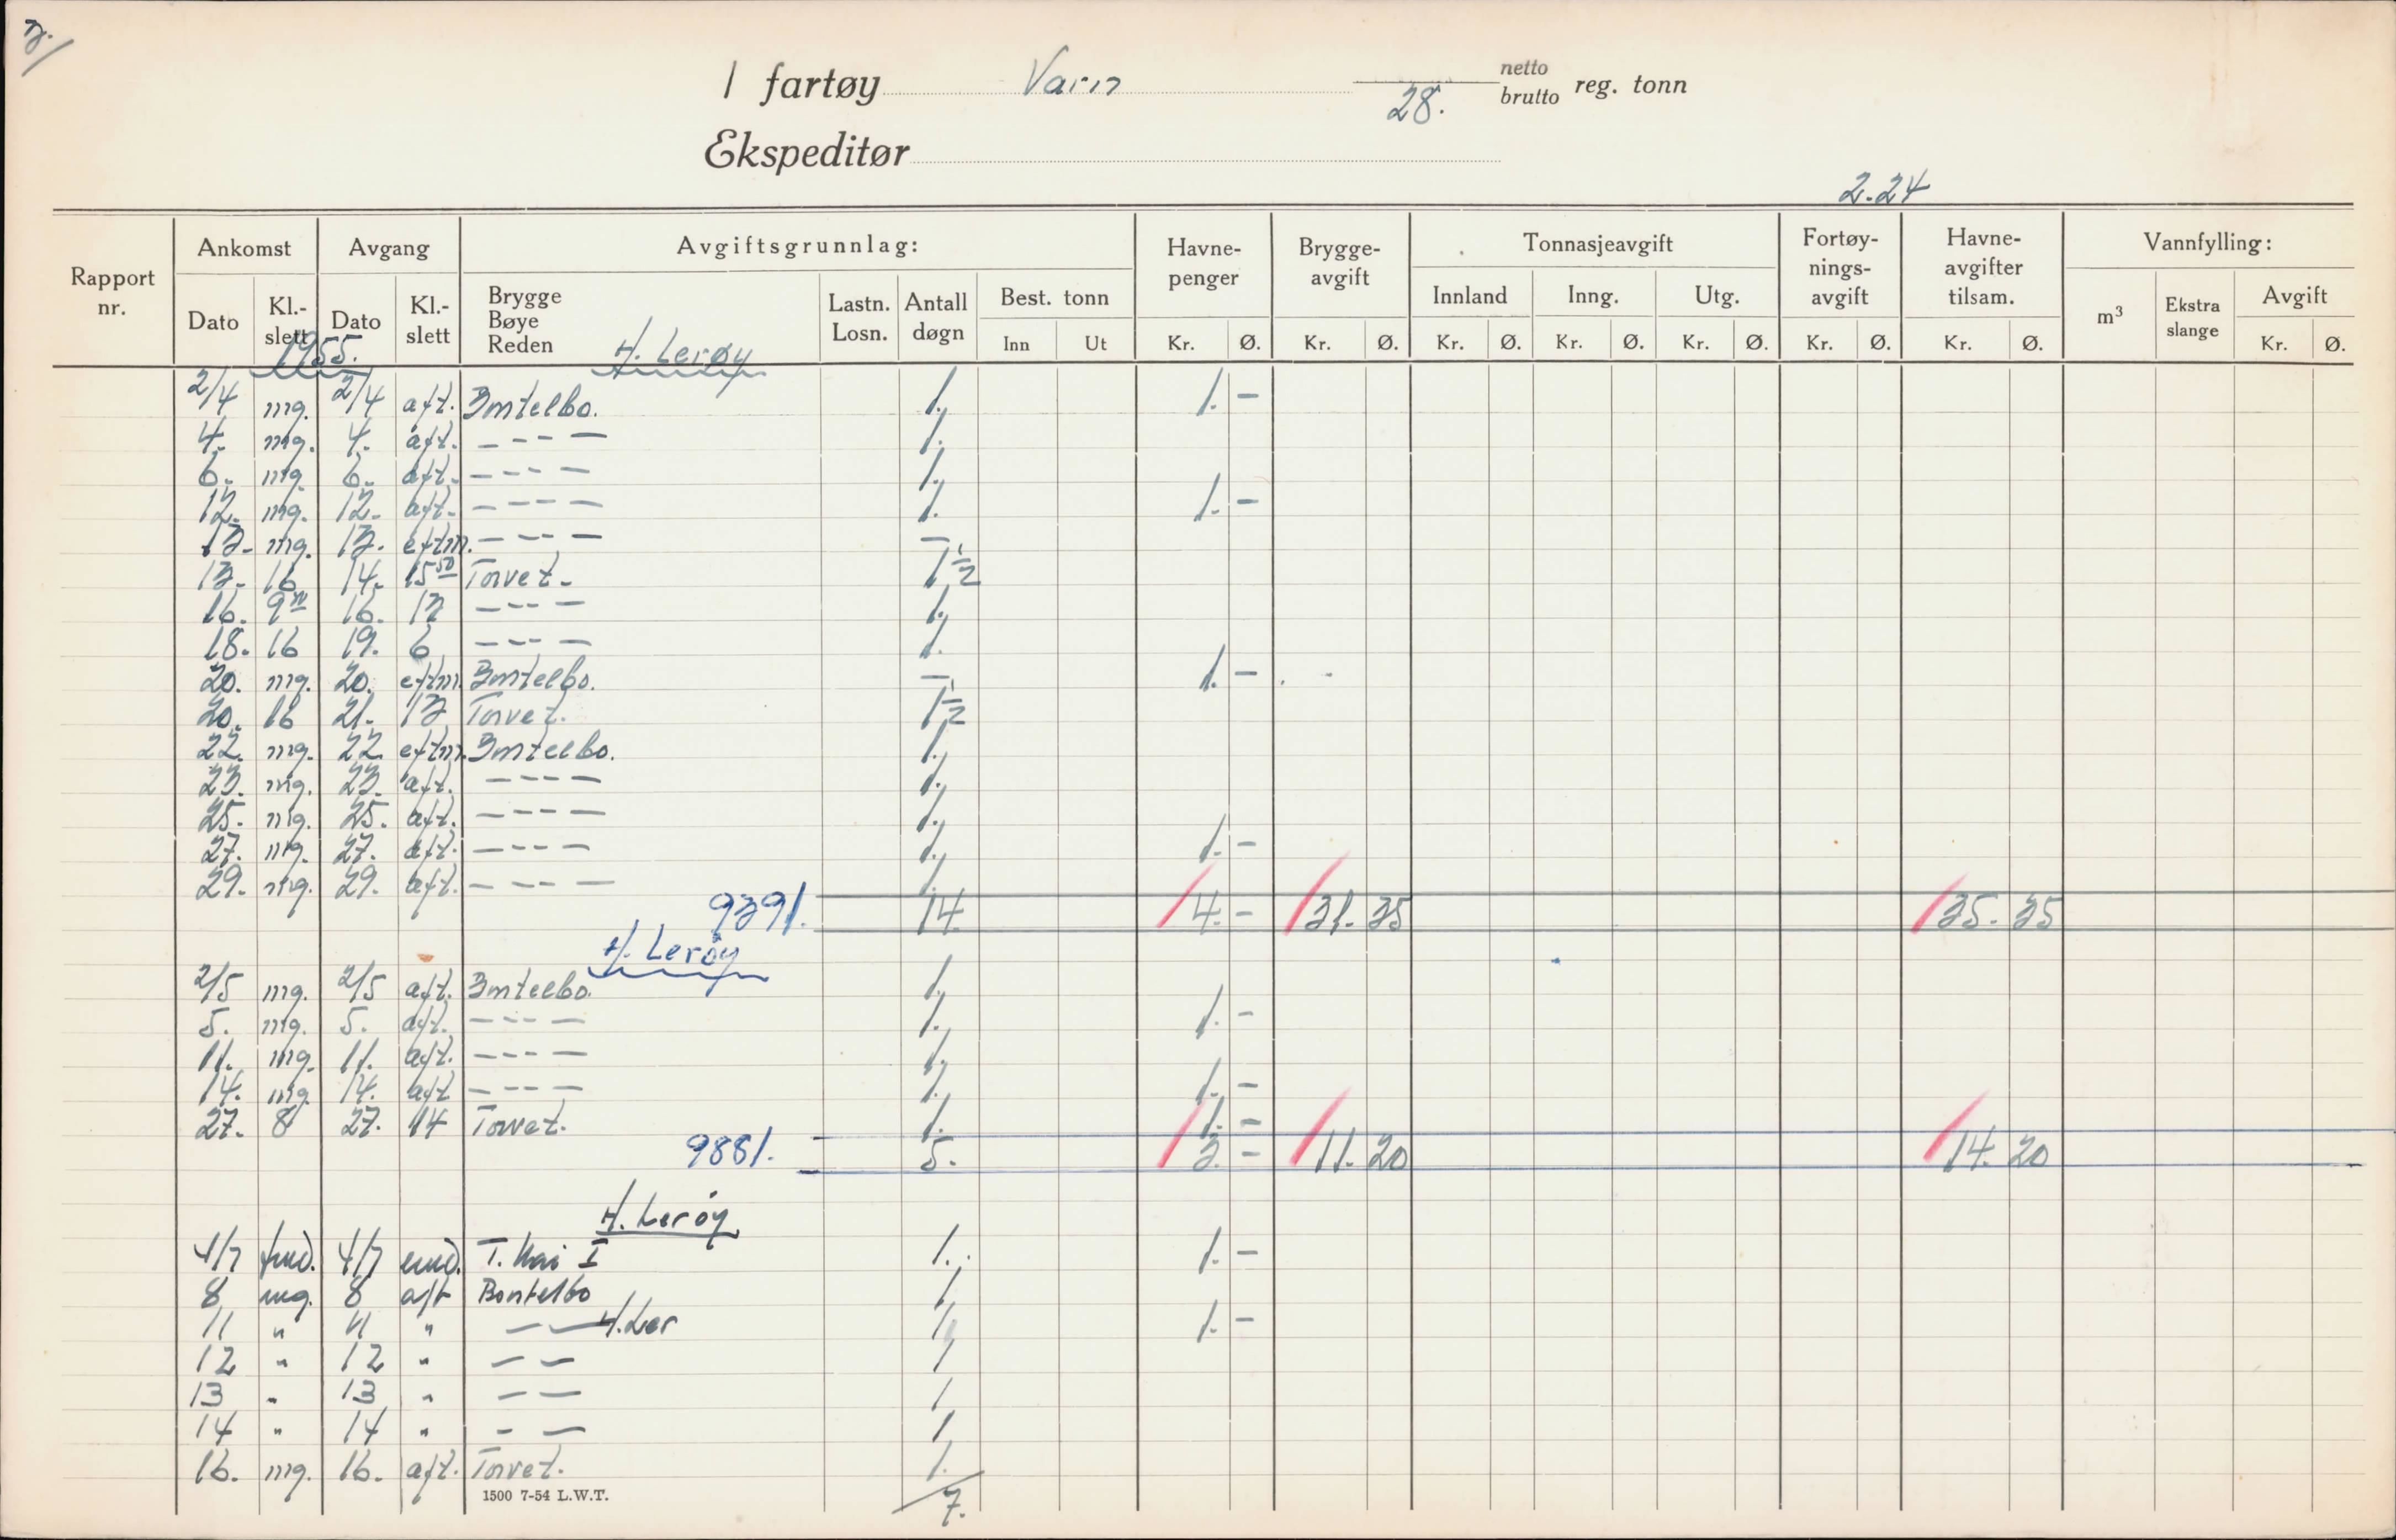 3.
I fartøy Varin 28. netto brutto reg. tonn
Ekspeditør
2.24
Rapport nr. Ankomst Avgang Avgiftsgrunnlag: Havne-penger Brygge-avgift Tonnasjeavgift Fortøy-nings-avgift Havne-avgifter tilsam. Vannfylling:
Dato Kl.-slett Dato Kl.-slett Brygge Bøye Reden Lastn. Losn. Antall døgn Best. tonn Innland Inng. Utg. m³ Ekstra slange Avgift
Inn Ut Kr. Ø. Kr. Ø. Kr. Ø. Kr. Ø. Kr. Ø. Kr. Ø. Kr. Ø. Kr. Ø.
1955. H. Lerøy
2/4 mg. 2/4 aft. Bontelbo. 1. 1. –
4. mg. 4. aft. – – – – 1.
6. mg. 6. aft. – – – – 1.
12. mg. 12. aft. – – – – 1. 1. –
13. mg. 13. eftm. – – – – –
13. 16 14. 15⁵⁰ Torvet. 1 ½
16. 9 16. 13 – – – – 1.
18. 16 19. 6 – – – – 1.
20. mg. 20. eftm. Bontelbo. – 1. –
20. 16 21. 13 Torvet. 1 ½
22. mg. 22 eftm. Bontelbo. 1.
23. mg. 23. aft. – – – – 1.
25. mg. 25. aft. – – – – 1.
27. mg. 27. aft. – – – – 1. 1. –
29. mg. 29. aft. – – – – 1.
9391. 14. 4. – 31. 35 35. 35
H. Lerøy
2/5 mg. 2/5 aft. Bontelbo. 1.
5. mg. 5. aft. – – – – 1. 1. –
11. mg. 11. aft. – – – – 1.
14. mg. 14. aft – – – – 1. 1. –
27. 8 27. 14 Torvet. 1. 1. –
9881. 5. 3. – 11. 20 14. 20
H. Lerøy
4/7 fmd. 4/7 emd. T. Kai I 1. 1. –
8 mg. 8 aft Bontelbo 1
11 " 11 " – – H. Ler 1 1. –
12 " 12 " – – 1
13 " 13 " – – 1
14 " 14 " – – 1
16. mg. 16. aft. Torvet. 1.
1500 7-54 L.W.T. 7.